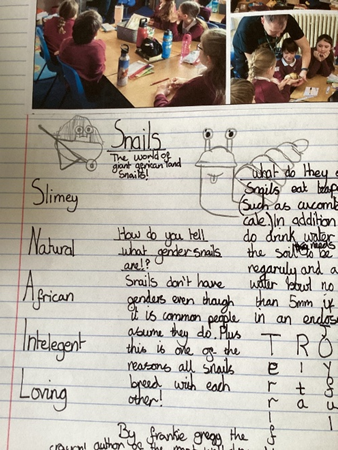 Snails
The world of
giant african land
Snails!
Slimey
Natural
African
Intelegent
Loving
How do you tell
what gender snails
are!?
Snails don't have
genders even though
it is common people
asume they do. Plus
this is one of the
reasons all snails
breed with each
other!
what do they
Snails eat
Such as
In addition
do drink water
the soil to be
regaruly and a
water bowl no
than 5mm if
in an
T R O
e i y
r t g
r a u
By frankie gregg the